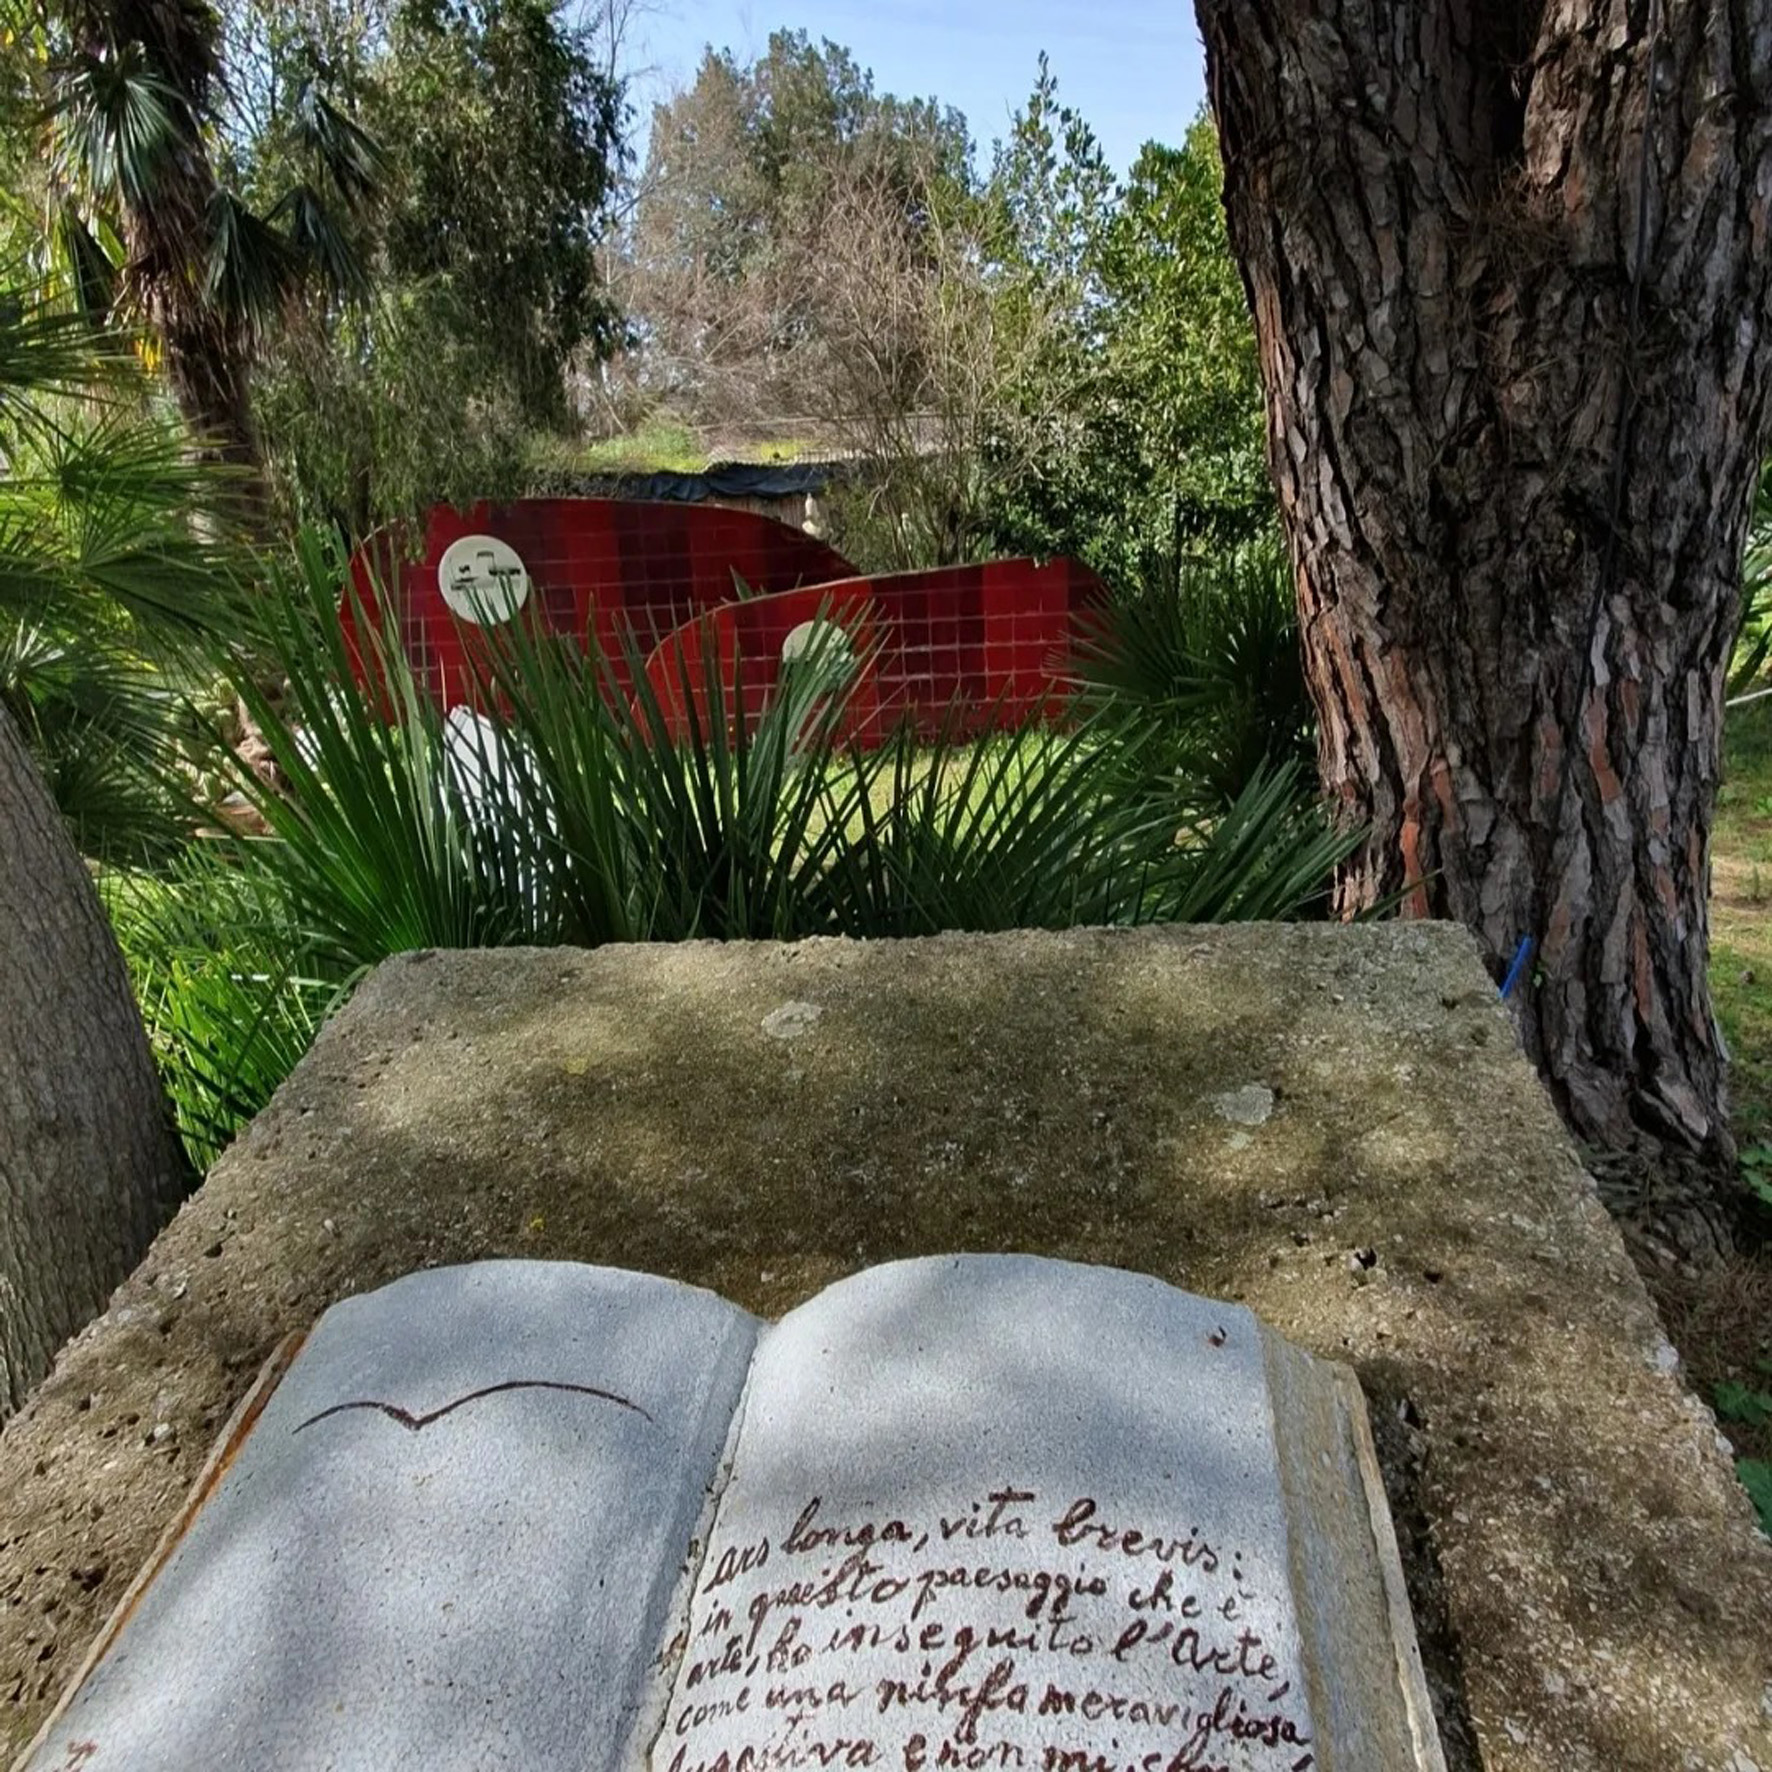 ars longa, vita brevis:
in questo paesaggio che è
arte, ho inseguito l'Arte,
come una ninfa meravigliosa
e non mi